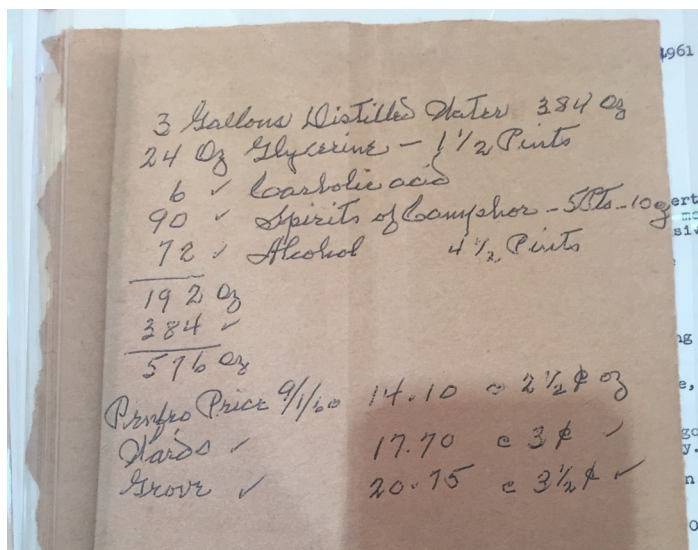 3 Gallons Distilled Water 384 Oz
24 Oz Glycerine - 1 1/2 Pints
6 ✓ Carbolic acid
90 ✓ Spirits of Camphor - 5 Pts - 10 oz
72 ✓ Alcohol 4 1/2 Pints
192 Oz
384 ✓
576 Oz
Price 9/1/60 14.10 @ 2 1/2 ¢ oz
Wards ✓ 17.70 @ 3 ¢ ✓
Grove ✓ 20.75 @ 3 1/2 ¢ ✓
1961